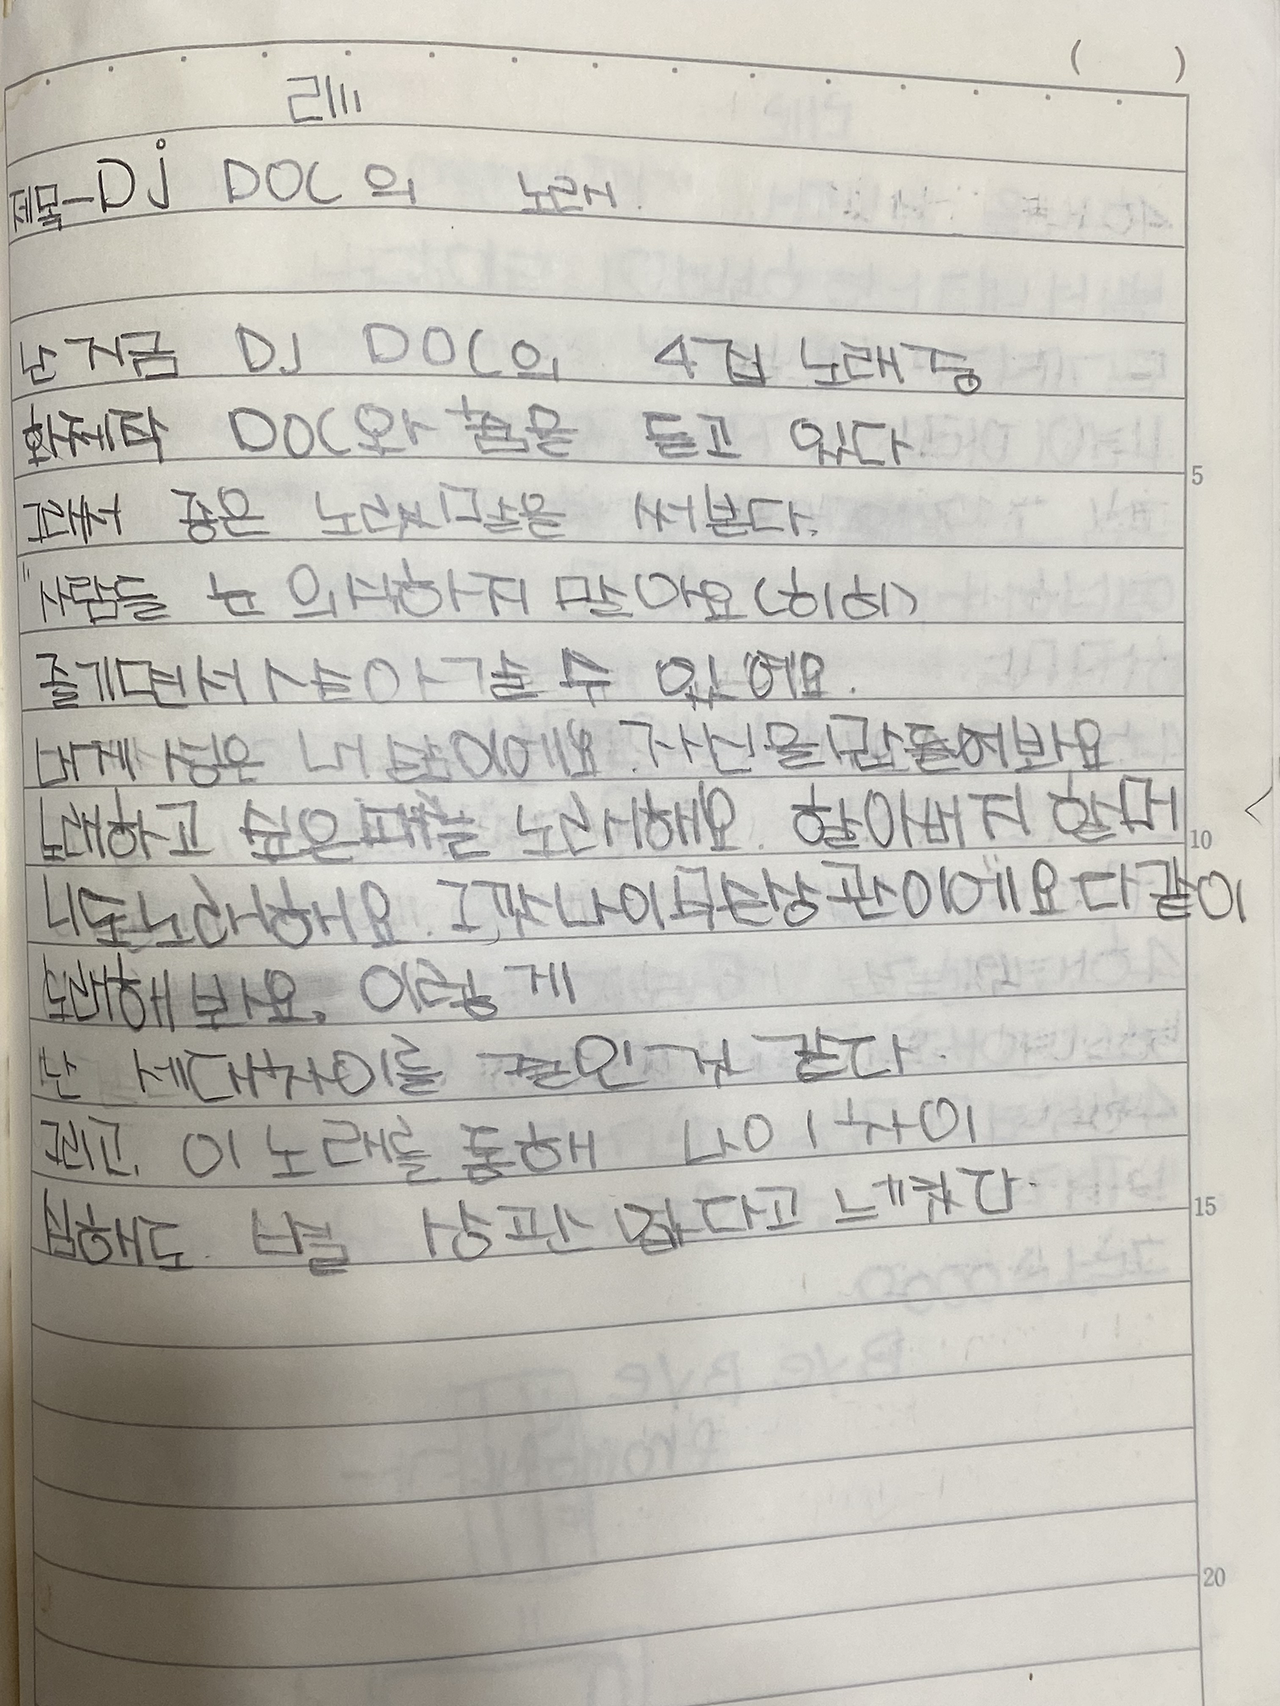 제목-Dj DOC의 노래
난 지금 DJ DOC의 4집 노래중
화제작 DOC와 춤을 듣고 있다.
그래서 좋은 노래가사말을 써본다.
"사람들 눈 의식하지 말아요(히히)
즐기면서 살아갈 수 있어요.
내게 사랑은 자신을 만들어봐요
노래하고 싶은때는 노래해요. 할아버지 할머
니도 노래해요. 그깟 나이 무슨 상관이에요 다같이
노래해 봐요. 이렇게
난 세대차이를 줄인것 같다.
그리고, 이 노래를 통해 나이 차이
심해도 별 상관 없다고 느꼈다.
5
10
15
20